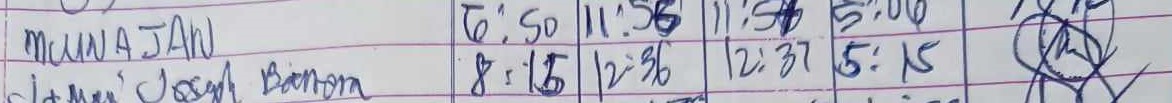 MUNAJAN 6:50 11:56 11:56 5:06
Joseph 8:15 12:36 12:37 5:15